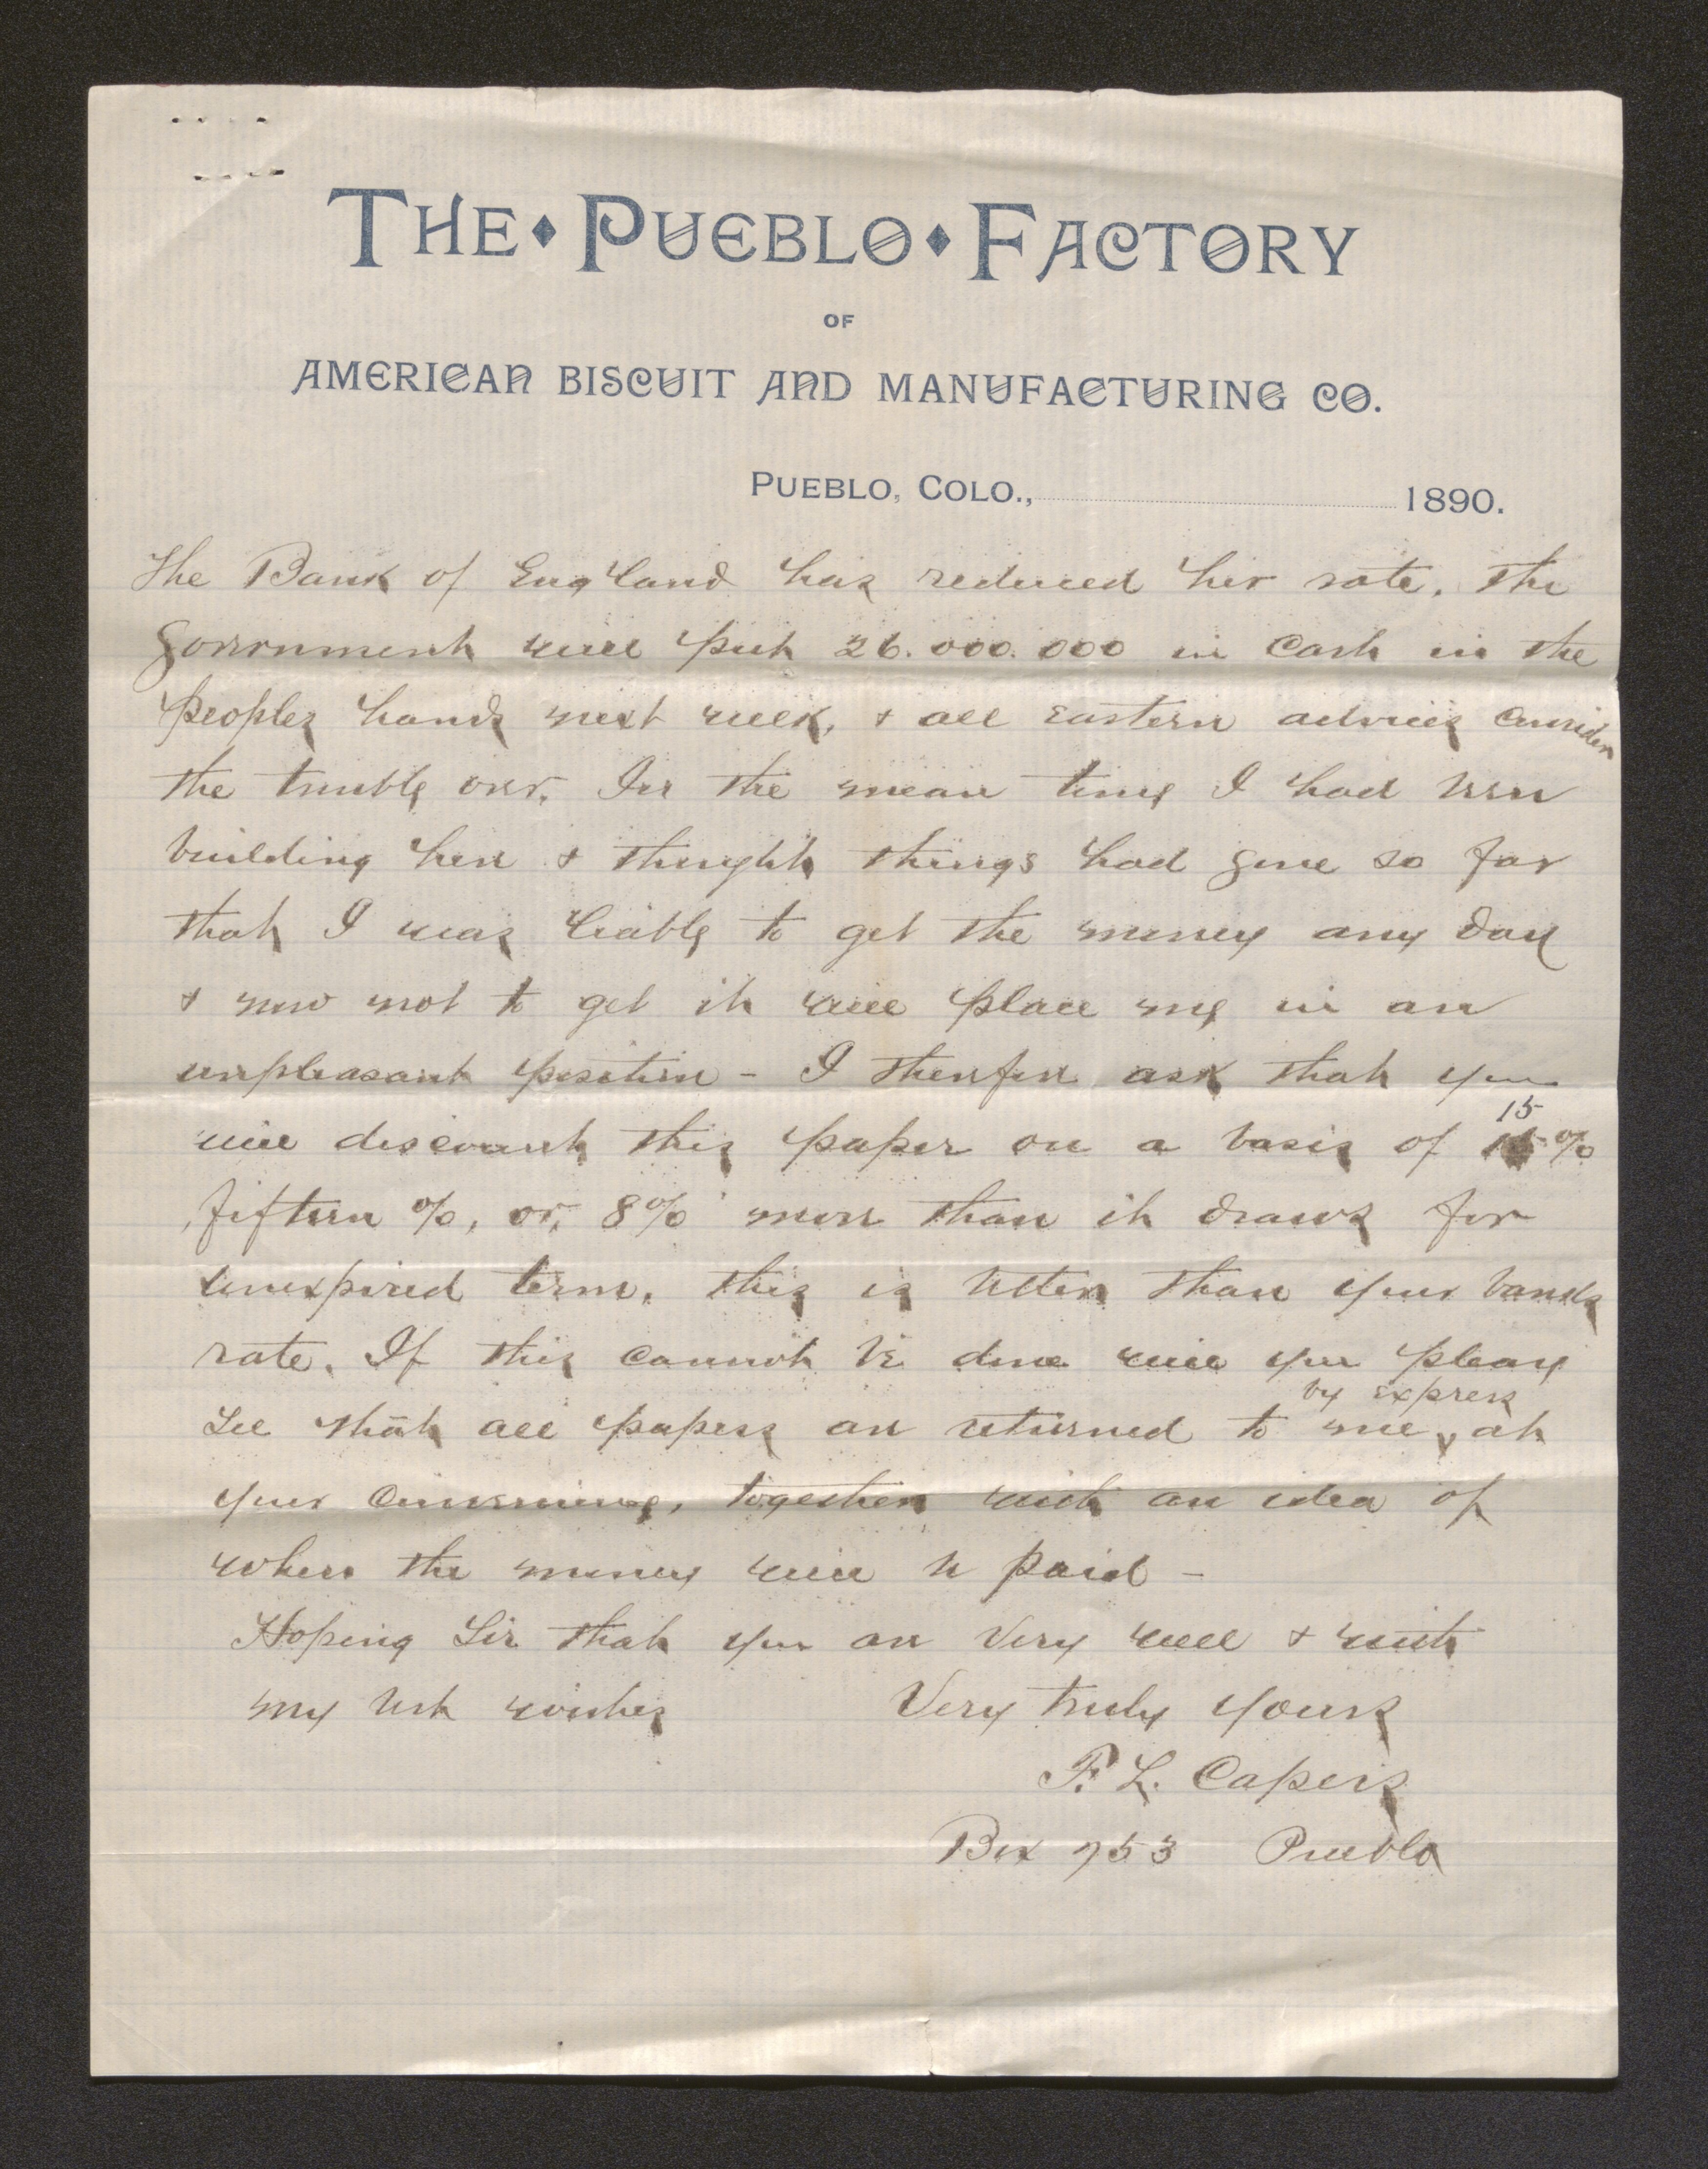 THE • PUEBLO • FACTORY
OF
AMERICAN BISCUIT AND MANUFACTURING CO.
PUEBLO, COLO., 1890.
The Bank of England has reduced her rate. The
Government will put 26.000.000 in Cash in the
peoples hands next week, & all Eastern advices Consider
the trouble over. In the mean time I had been
building here & thought things had gone so far
that I was liable to get the money any day
& now not to get it will place me in an
unpleasant position - I therefore ask that you
will discount this paper on a basis of 15 %
fifteen %, or, 8% more than it draws for
unexpired term. this is better than your banks
rate. If this cannot be done will you please
by express
See that all papers are returned to me, at
your convenience, together with an idea of
when the money will be paid -
Hoping Sir that you are Very well & with
my best wishes Very truly yours
F. L. Capers
Box 753 Pueblo